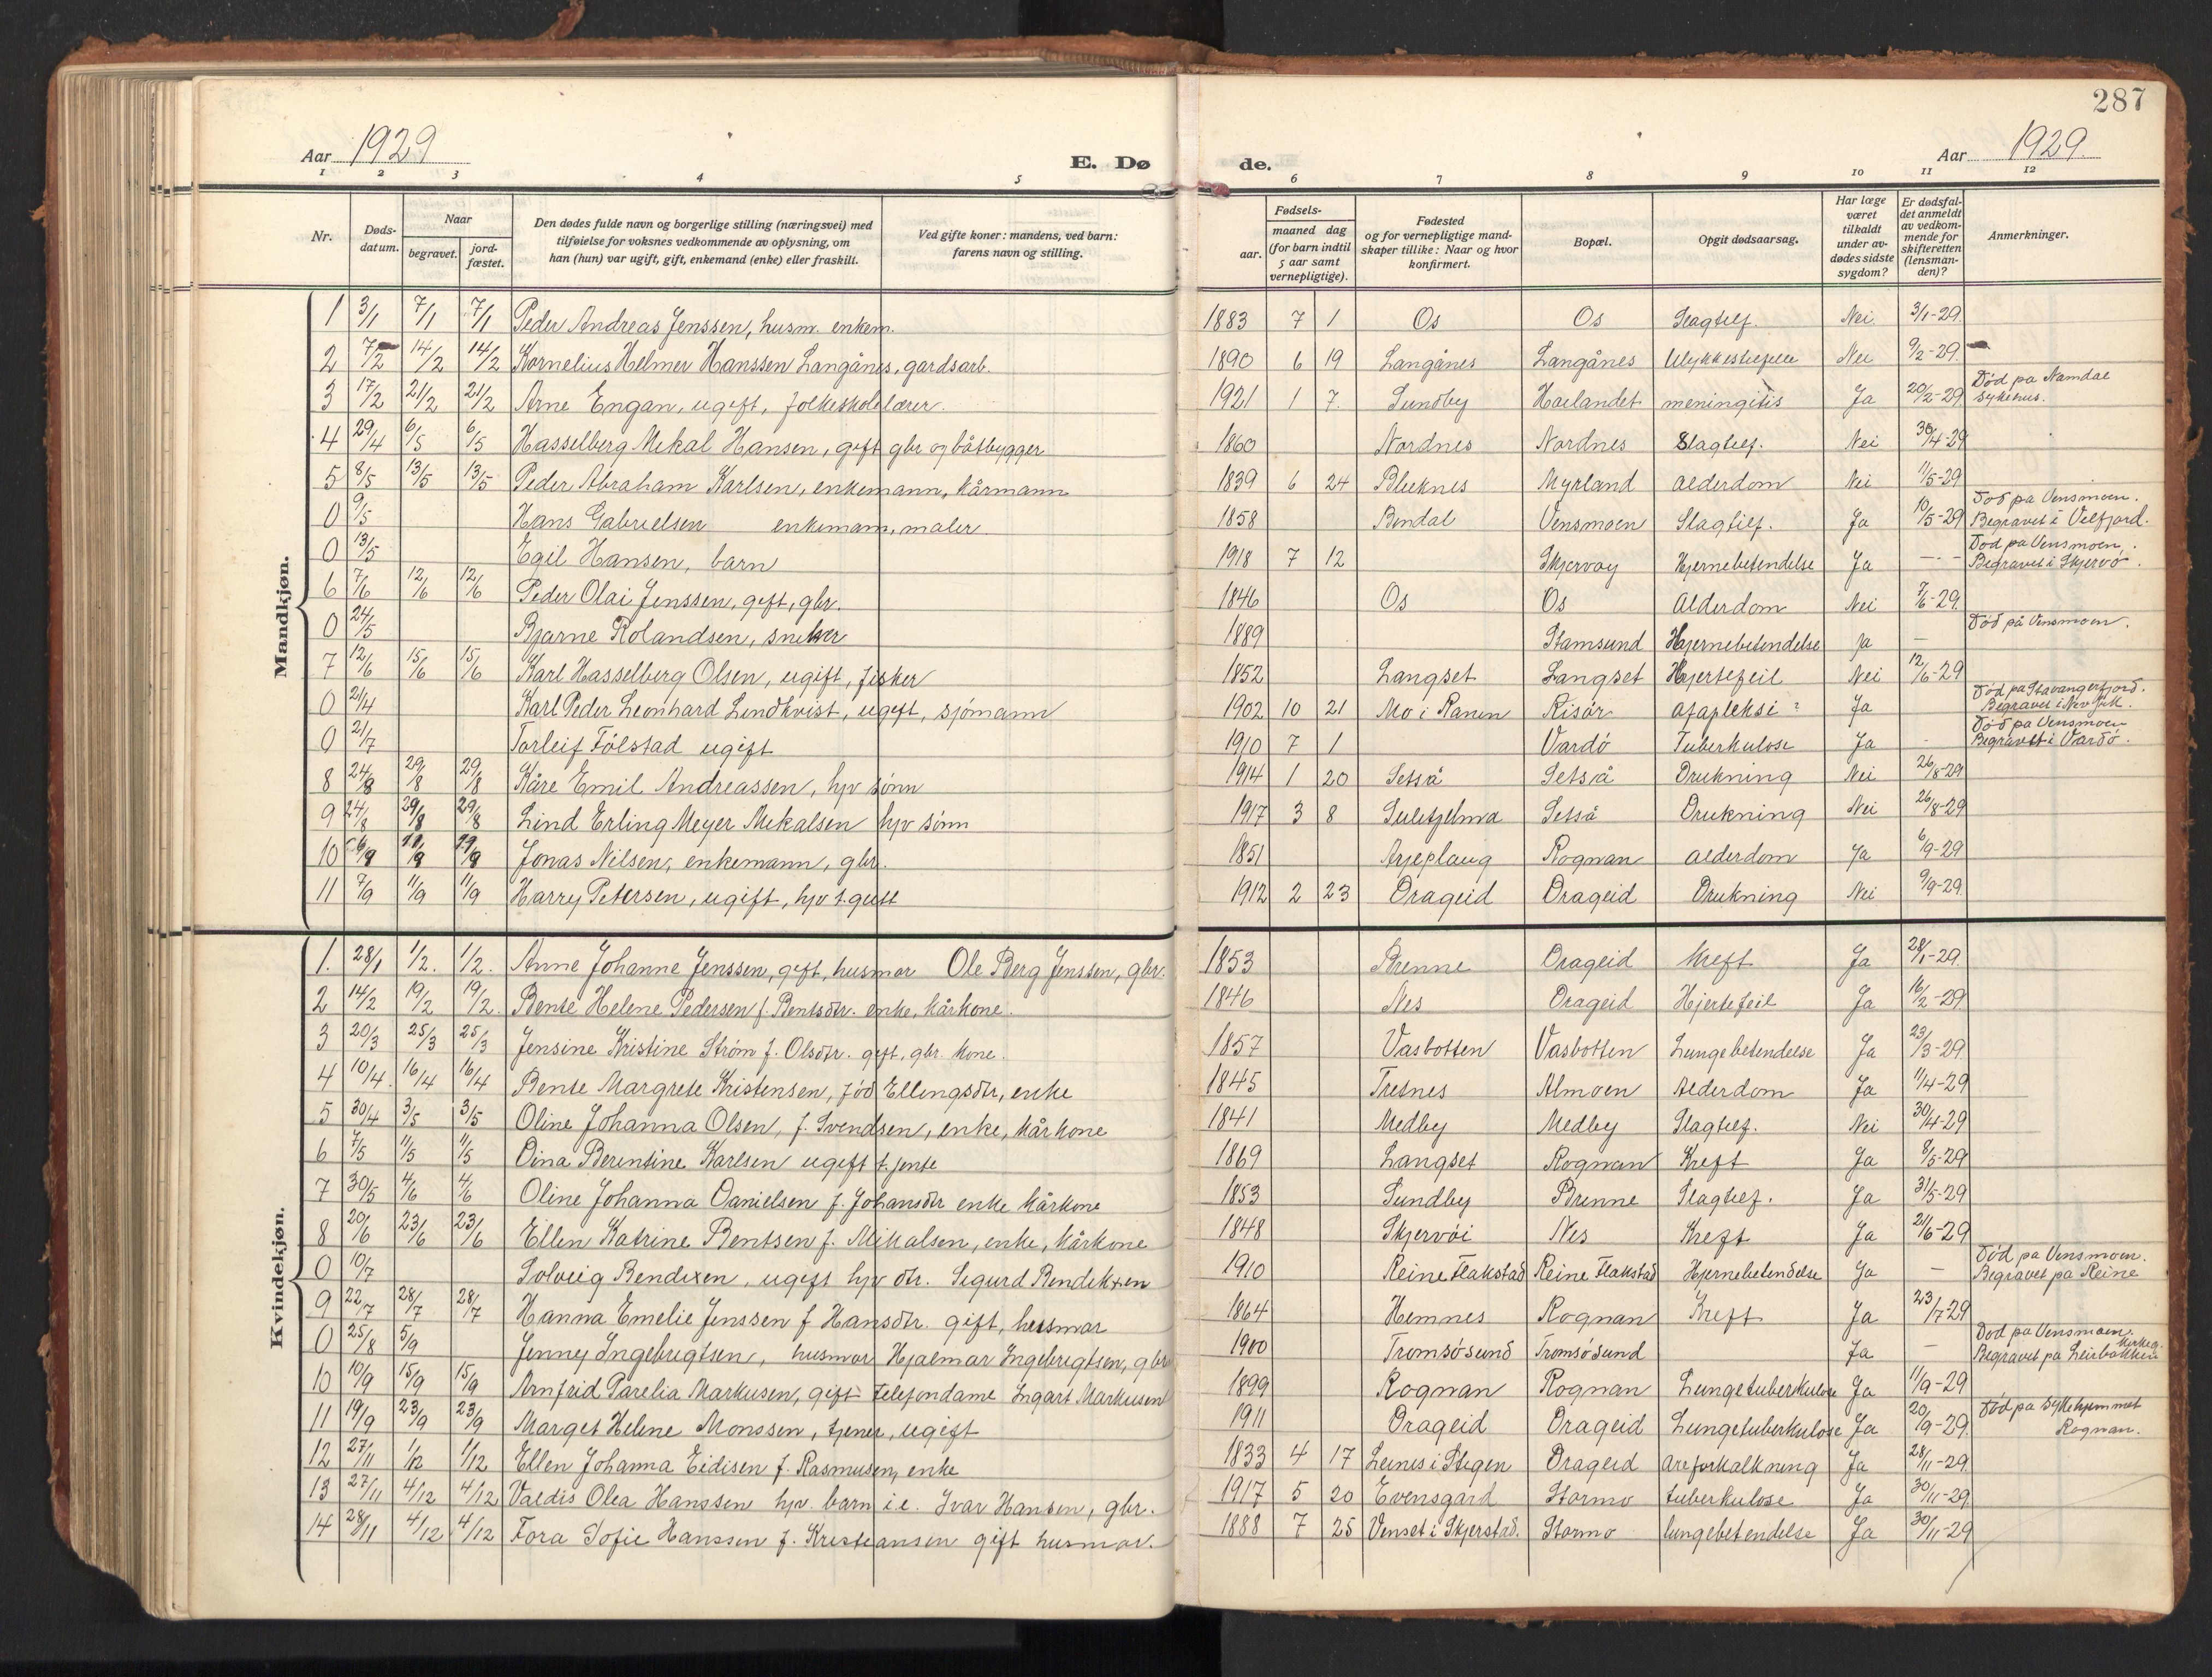 287
Aar 1929 E. Dø de. Aar 1929.
1 2 3 4 5 6 7 8 9 10 11 12
Nr. Døds-datum. Naar begravet. jord-fæstet. Den dødes fulde navn og borgerlige stilling (næringsvei) med tilføielse for voksnes vedkommende av oplysning, om han (hun) var ugift, gift, enkemand (enke) eller fraskilt. Ved gifte koner: mandens, ved barn: farens navn og stilling. Fødsels- aar. maaned dag (for barn indtil 5 aar samt vernepligtige). Fødested og for vernepligtige mand-skaper tillike: Naar og hvor konfirmert. Bopæl. Opgit dødsaarsag. Har læge været tilkaldt under av-dødes sidste sygdom? Er dødsfal-det anmeldt av vedkom-mende for skifteretten (lensman-den)? Anmerkninger.
Mandkjøn.
1 3/1 7/1 7/1 Peder Andreas Jenssen, husm. enkem. 1883 7 1 Os Os Slagtilf. Nei 3/1-29.
2 7/2 14/2 14/2 Kornelius Helmer Hanssen Langånes, gardsarb. 1890 6 19 Langånes Langånes Ulykkestilfelle Nei 9/2-29.
3 17/2 21/2 21/2 Arne Engan, ugift, folkeskolelærer. 1921 1 7. Sundby Høilandet meningitis Ja 20/2-29 Død på Namdal sykehus.
4 29/4 6/5 6/5 Hasselberg Mikal Hansen, gift gbr og båtbygger 1860 Nordnes Nordnes Slagtilf. Nei 30/4-29
5 8/5 13/5 13/5 Peder Abraham Karlsen, enkemann, kårmann 1839 6 24 Bleiknes Myrland Alderdom Nei 11/5-29
0 9/5 Hans Gabrielsen enkemann, maler. 1858 Bindal Vensmoen Slagtilf. Ja 10/5-29 Død på Vensmoen. Begravet i Velfjord.
0 13/5 Egil Hansen, barn 1918 7 12 Skjervøy Hjernebetendelse Ja — Død på Vensmoen. Begravet i Skjervø.
6 7/6 12/6 12/6 Peder Olai Jenssen, gift, gbr. 1846 Os Os Alderdom Nei 7/6-29.
0 24/5 Bjarne Rolandsen, snekker 1889 Stamsund Hjernebetendelse Ja — Død på Vensmoen.
7 12/6 15/6 15/6 Karl Hasselberg Olsen, ugift, fisker 1852 Langset Langset Hjertefeil Nei 12/6-29
0 21/4 Karl Peder Leonhard Lindkvist, ugift, sjømann 1902 10 21 Mo i Ranen Risør apapleksi? Ja Død på Stavangerfjord. Begravet i New York.
0 21/7 Torleif Følstad ugift 1910 7 1 Vardø Tuberkulose Ja - Død på Vensmoen Begravet i Vardø.
8 24/8 29/8 29/8 Kåre Emil Andreassen, hjv sønn 1914 1 20 Setså Setså Drukning Nei 26/8-29
9 24/8 29/8 29/8 Lind Erling Meyer Mikalsen hjv sønn 1917 3 8 Sulitjelma Setså Drukning Nei 26/8-29
10 6/9 11/9 11/9 Jonas Nilsen, enkemann, gbr. 1851 Arjeplaug Rognan Alderdom Ja 6/9-29
11 7/9 11/9 11/9 Harry Petersen, ugift, hjv t.gutt 1912 2 23 Drageid Drageid Drukning Nei 9/9-29
Kvindekjøn.
1. 28/1 1/2. 1/2. Anne Johanne Jenssen, gift, husmor Ole Berg Jenssen, gbr. 1853 Brenne Drageid Kreft Ja 28/1-29.
2 14/2 19/2 19/2. Bente Helene Pedersen f. Bentsdtr. enke, kårkone. 1846 Nes Drageid Hjertefeil Ja 16/2-29
3 20/3 25/3 25/3 Jensine Kristine Strøm f. Olsdtr. gift, gbr. kone. 1857 Vasbotten Vasbotten Lungebetendelse Ja 23/3-29.
4 10/4. 16/4 16/4 Bente Margrete Kristensen, fød Ellingsdtr, enke 1845 Tresnes Almoen Alderdom Ja 11/4-29
5 30/4 3/5 3/5 Oline Johanna Olsen, f. Svendsen, enke, kårkone 1841 Medby Medby Slagtilf. Nei 30/4-29
6 7/5 11/5 11/5 Dina Berentine Karlsen ugift t.jente 1869 Langset Rognan Kreft Ja 8/5-29
7 30/5 4/6 4/6 Oline Johanna Danielsen f. Johansdtr enke kårkone 1853 Sundby Brenne Slagtilf. Ja 31/5-29
8 20/6 23/6 23/6 Ellen Katrine Bentsen f. Mikalsen, enke, kårkone 1848 Skjervöi Nes Kreft Ja 21/6-29
0 10/7 Solveig Bendixen, ugift hjv dtr. Sigurd Bendiksen 1910 Reine Flakstad Reine Flakstad Hjernebetendelse Ja — Død på Vensmoen. Begravet på Reine
9 22/7 28/7 28/7 Hanna Emelie Jenssen f Hansdtr. gift, husmor 1864 Hemnes Rognan Kreft Ja 23/7-29
0 25/8 5/9 Jenney Ingebrigtsen, husmor Hjalmar Ingebrigtsen, gbr 1900 Tromsøsund Tromsøsund Ja — Død på Vensmoen. Begravet på Leirbakken kirkeg.
10 10/9 15/9 15/9 Arnfrid Parelia Markusen, gift Telefondame Ingart Markusen 1899 Rognan Rognan Lungetuberkulose Ja 11/9-29
11 19/9 23/9 23/9 Marget Helene Monssen, tjener, ugift 1911 Drageid Drageid Lungetuberkulose Ja 20/9-29. Død på Sykehjemmet Rognan.
12 27/11 1/12 1/12 Ellen Johanna Eidisen f. Rasmusen, enke 1833 4 17 Leines i Steigen Drageid Areforkalkning Ja 28/11-29.
13 27/11 4/12 4/12 Valdis Olea Hanssen hjv. barn i.e. Ivar Hansen, gbr. 1917 5 20 Evensgård Stormo tuberkulose Ja 30/11-29
14 28/11 4/12 4/12 Tora Sofie Hanssen f. Kristiansen gift husmor. 1888 7 25 Venset i Skjerstad. Stormo lungebetendelse Ja 30/11-29